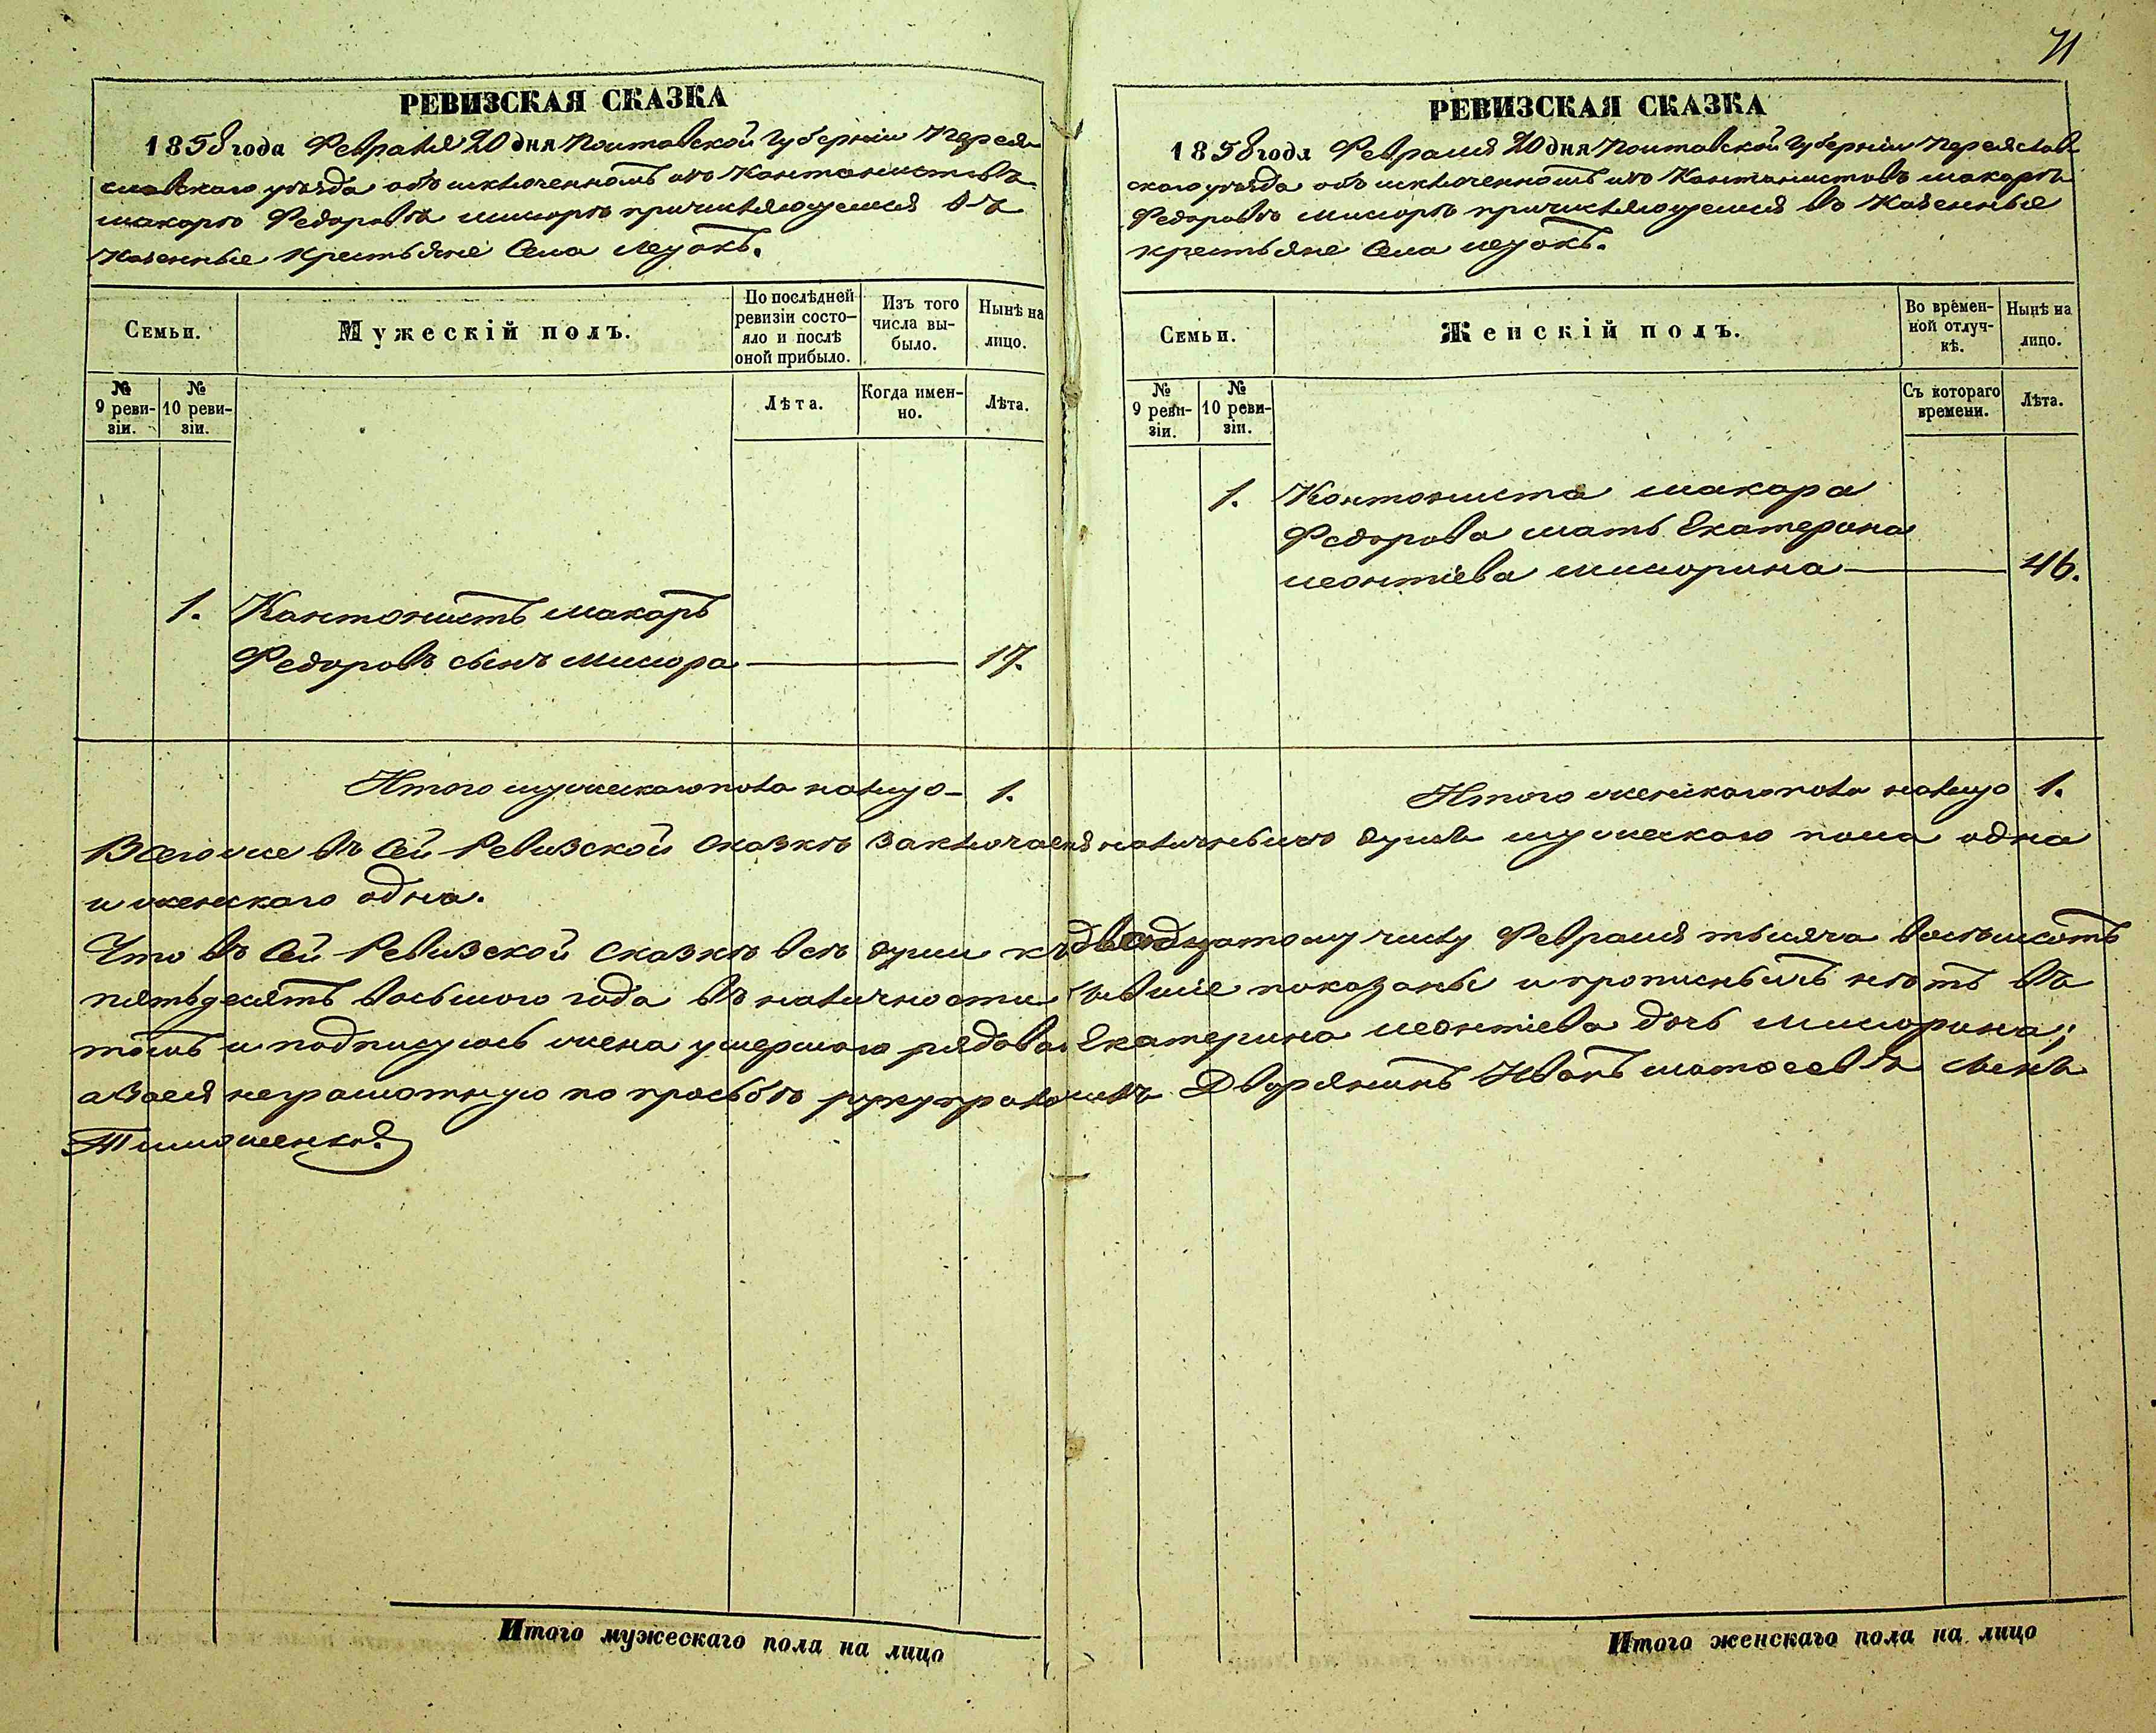 71
РЕВИЗСКАЯ СКАЗКА
1858 года Февраля 20 дня Полтавской Губерніи Перея-
славскаго уѣзда объ исключенномъ изъ Кантонистовъ
Макарѣ Федоровѣ Мисюрѣ причисляющемся въ
Казенные Крестьяне Села
Семьи.
Мужескій полъ.
По послѣдней ревизіи состо-
яло и послѣ оной прибыло.
Изъ того числа вы-
было.
Нынѣ на лицо.
№ 9 реви-
зіи.
№ 10 реви-
зіи.
Лѣта.
Когда имен-
но.
Лѣта.
1. Кантонистъ Макаръ
Федоровъ сынъ Мисюра 17.
Итого мужескаго пола налицо 1.
РЕВИЗСКАЯ СКАЗКА
1858 года Февраля 20 дня Полтавской Губерніи Переяслав-
скаго уѣзда объ исключенномъ изъ Кантонистовъ Макарѣ
Федоровѣ Мисюрѣ причисляющемся въ Казенные
крестьяне Села
Семьи.
Женскій полъ.
Во времен-
ной отлуч-
кѣ.
Нынѣ на лицо.
№ 9 реви-
зіи.
№ 10 реви-
зіи.
Съ котораго времени.
Лѣта.
1. Кантониста Макара
Федорова мать Екатерина
Леонтіева Мисюрина 46.
Итого женскаго пола налицо 1.
Всего же въ сей Ревизской сказкѣ заключается наличныхъ душъ мужескаго пола одна
и женскаго одна.
Что въ сей Ревизской Сказкѣ всѣ души къ двадцатому числу Февраля тысяча восемьсотъ
пятьдесятъ восьмого года въ наличности бывшіе показаны и прописныхъ нѣтъ въ
томъ и подписуюсь жена умершаго рядова Екатерина Леонтіева дочь Мисюрина;
а заея неграмотную по прозьбѣ рукуприложилъ Дворянинъ Иванъ Матвеевъ сынъ
Тимошенко.
Итого мужескаго пола на лицо
Итого женскаго пола на лицо